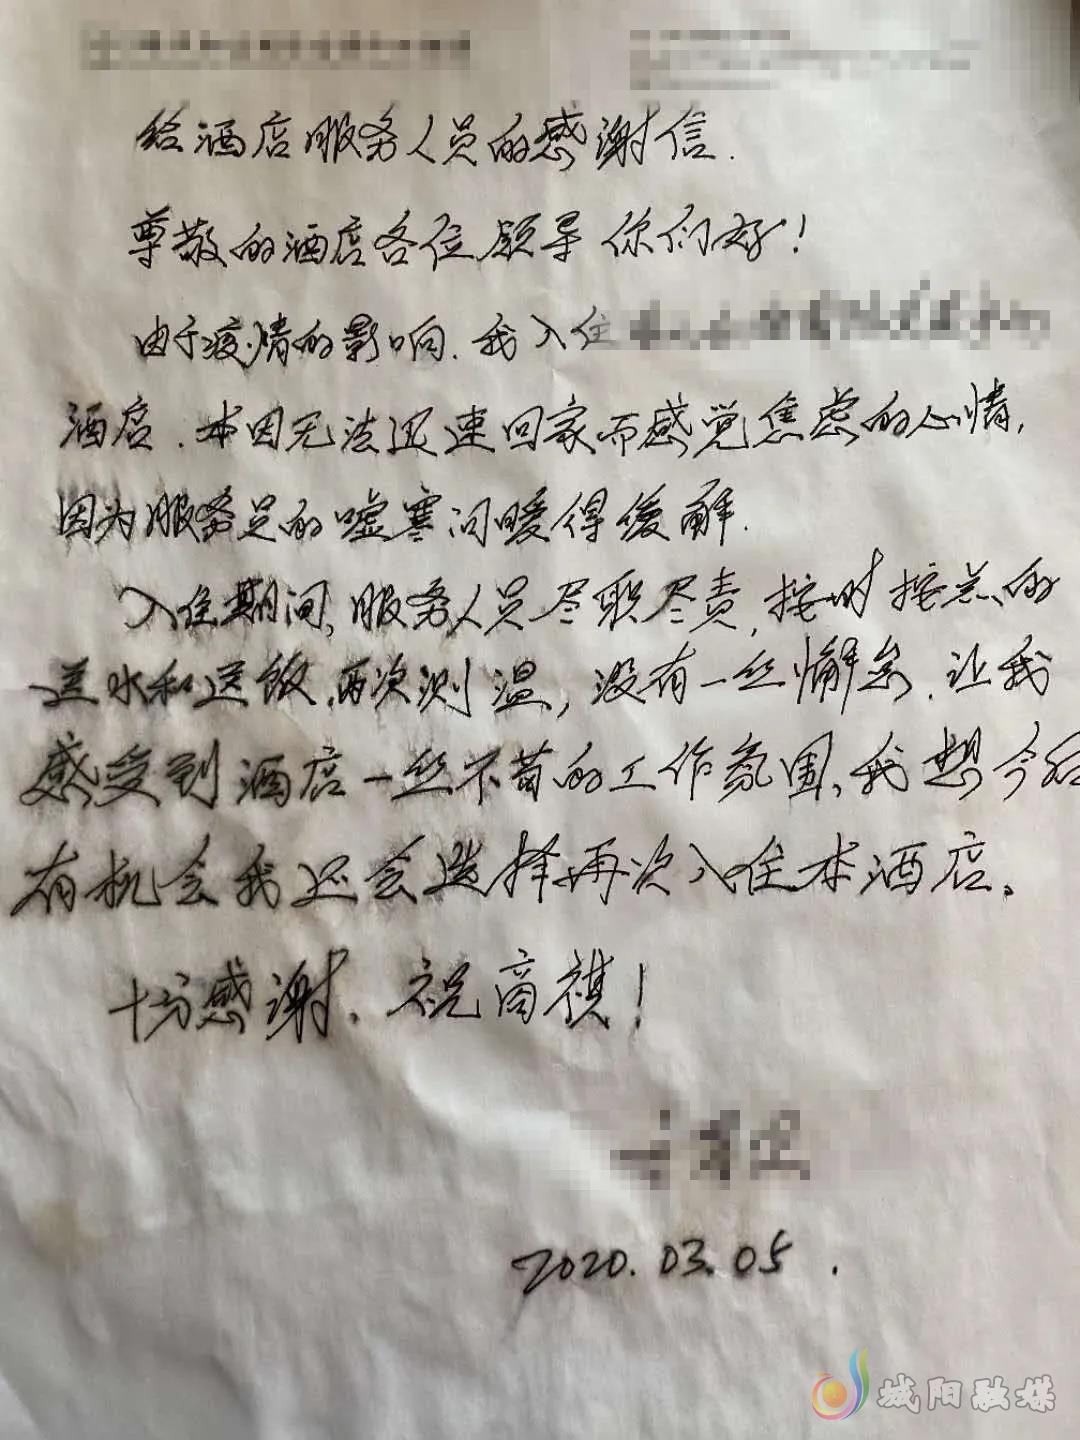 给酒店服务人员的感谢信.
尊敬的酒店各位领导你们好!
由于疫情的影响.我入住
酒店.本因无法迅速回家而感觉焦虑的心情,
因为服务员的嘘寒问暖得缓解.
入住期间,服务人员尽职尽责,按时按点的
送水和送饭.两次测温,没有一丝懈怠.让我
感受到酒店一丝不苟的工作氛围,我想今后
有机会我还会选择再次入住本酒店。
十分感谢、祝商祺!
2020.03.05.
城阳融媒